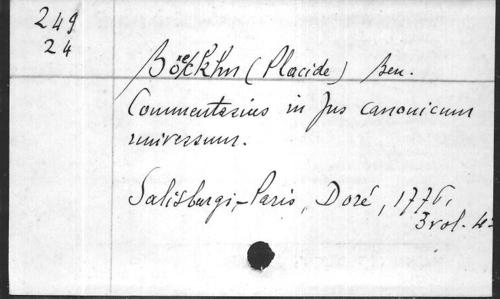 249
24
Böckhn (Placide) Ben.
Commentarius in Jus canonicum
universum.
Salisburgi-Paris, Doré, 1776,
3 vol. 4º